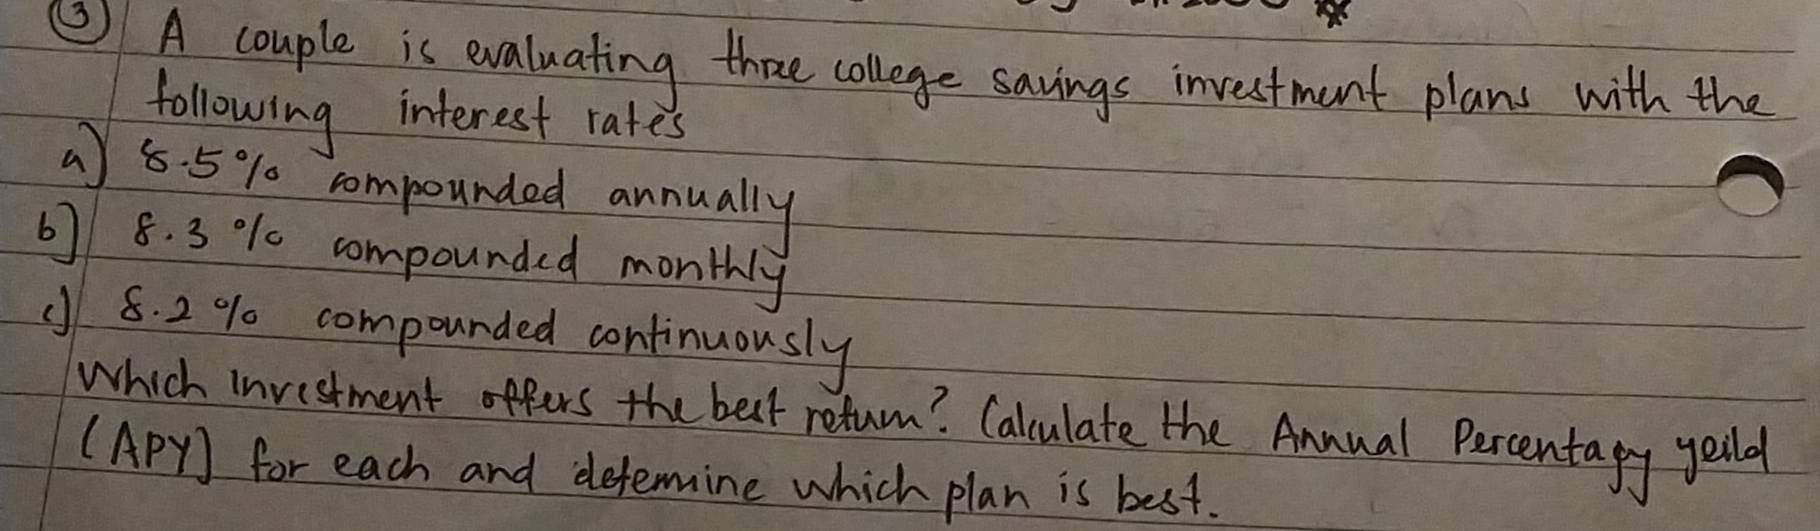 ③ A couple is evaluating three college savings investment plans with the
following interest rates
a) 8.5% compounded annually
b) 8.3% compounded monthly
c) 8.2% compounded continuously
Which investment offers the best return? Calculate the Annual Percentagy yeild
(APY) for each and detemine which plan is best.